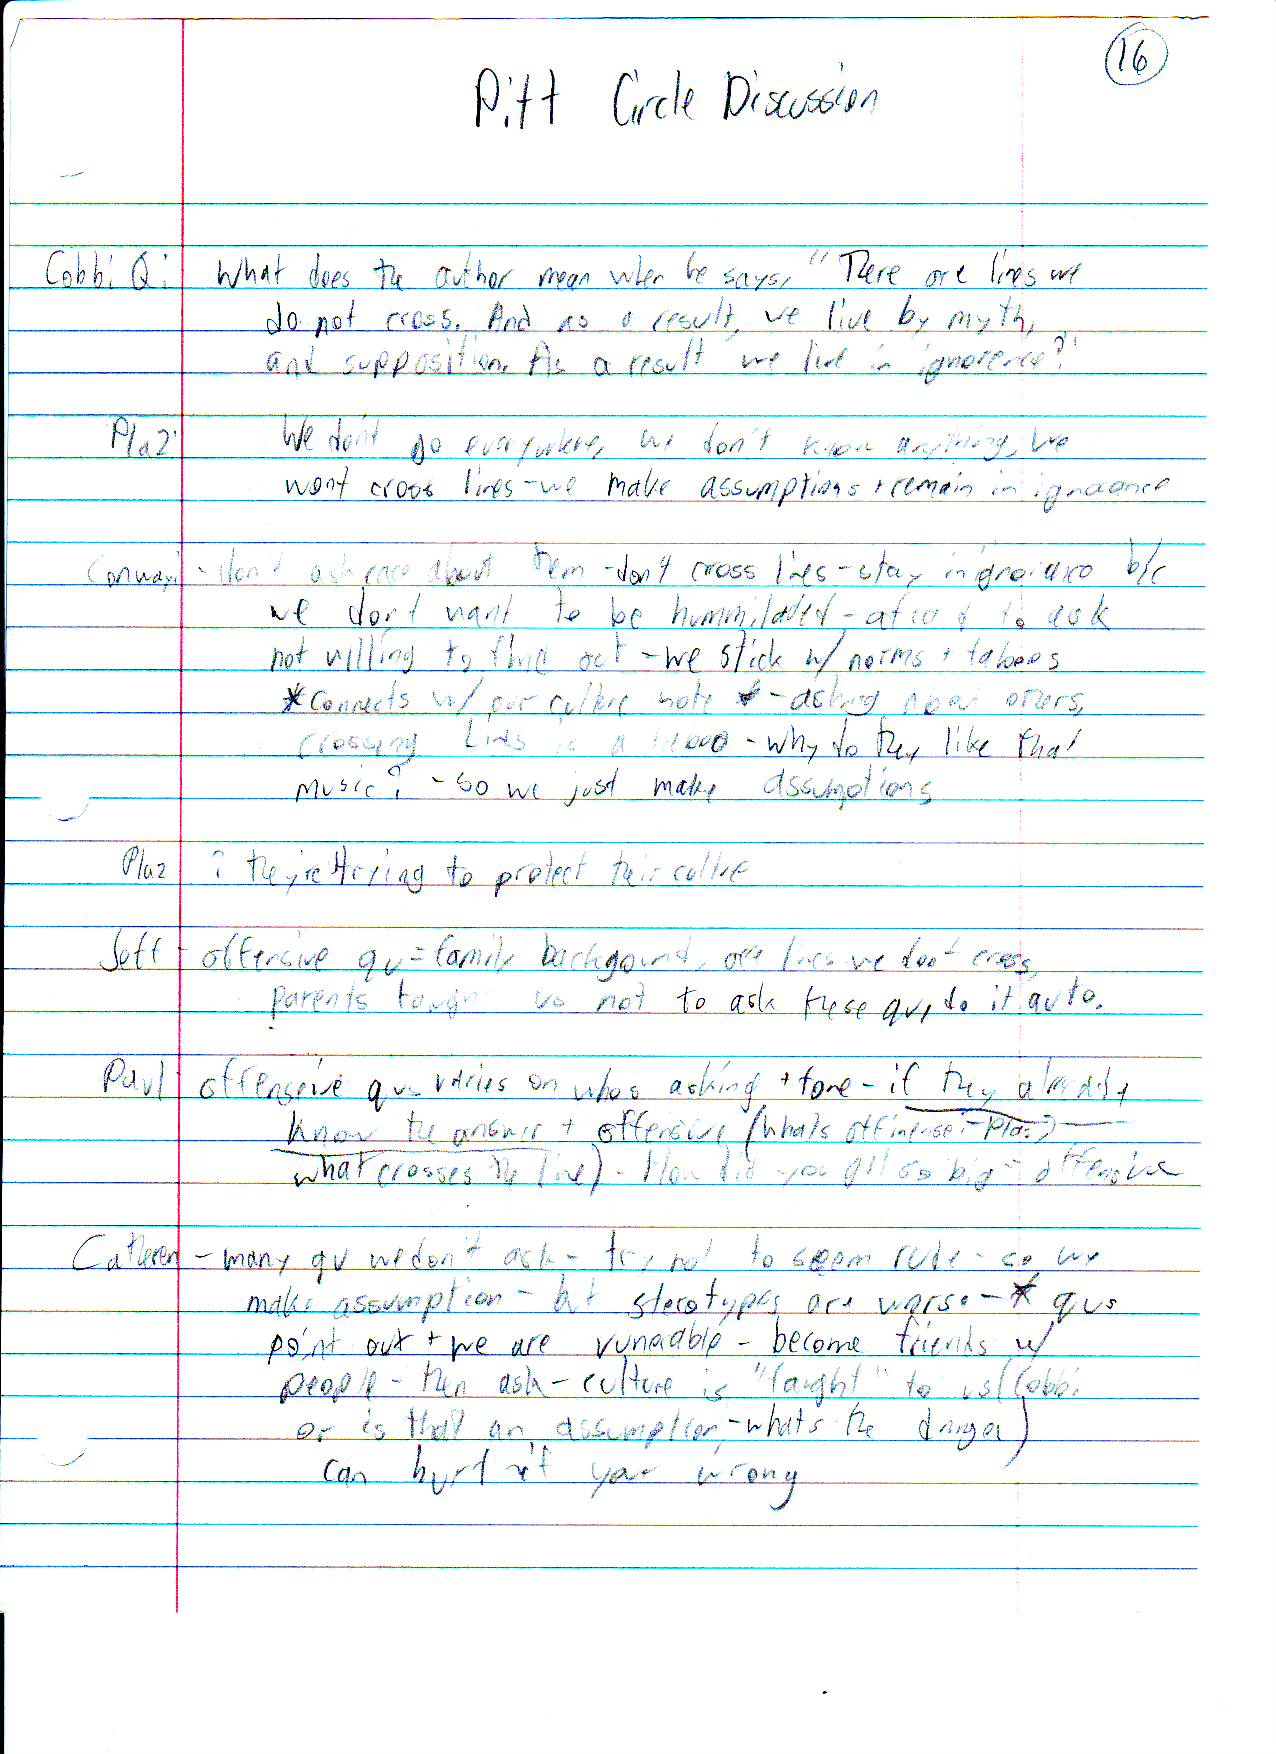 16
Pitt Circle Discussion
Cobbi Q: What does the author mean when he says, "There are lines we
do not cross. And as a result, we live by myth,
and supposition. As a result we live in ignorence?"
Plaz: We don't go everywhere, we don't know anything, we
wont cross lines - we make assumptions + remain in ignorance
Conway: - don't ask about them - don't cross lines - stay in b/c
we don't want to be hummilated - afraid to ask
not willing to find out - we stick w/ norms + taboos
* Connects w/ our culture note * - asking about others,
crossing lines is a taboo - why do they like that
music? - so we just make assumptions
Plaz ? they're trying to protect their culture
Jeff - offensive qu = family background, are lines we don't cross,
parents taught us not to ask these qu, do it auto.
Paul offensive qus varies on whos asking + tone - if they already
know the answer + offensive (whats offensive? - Plaz)
what crosses the line) - How did you get so big - offensive
Catheren - many qu we don't ask - try not to seem rude - so we
make assumption - but sterotypes are worse - * qus
point out + we are vunarable - become friends w/
people - then ask - culture is "taught" to us (Cobbi
or is that an assumption - whats the danger)
can hurt if your wrong